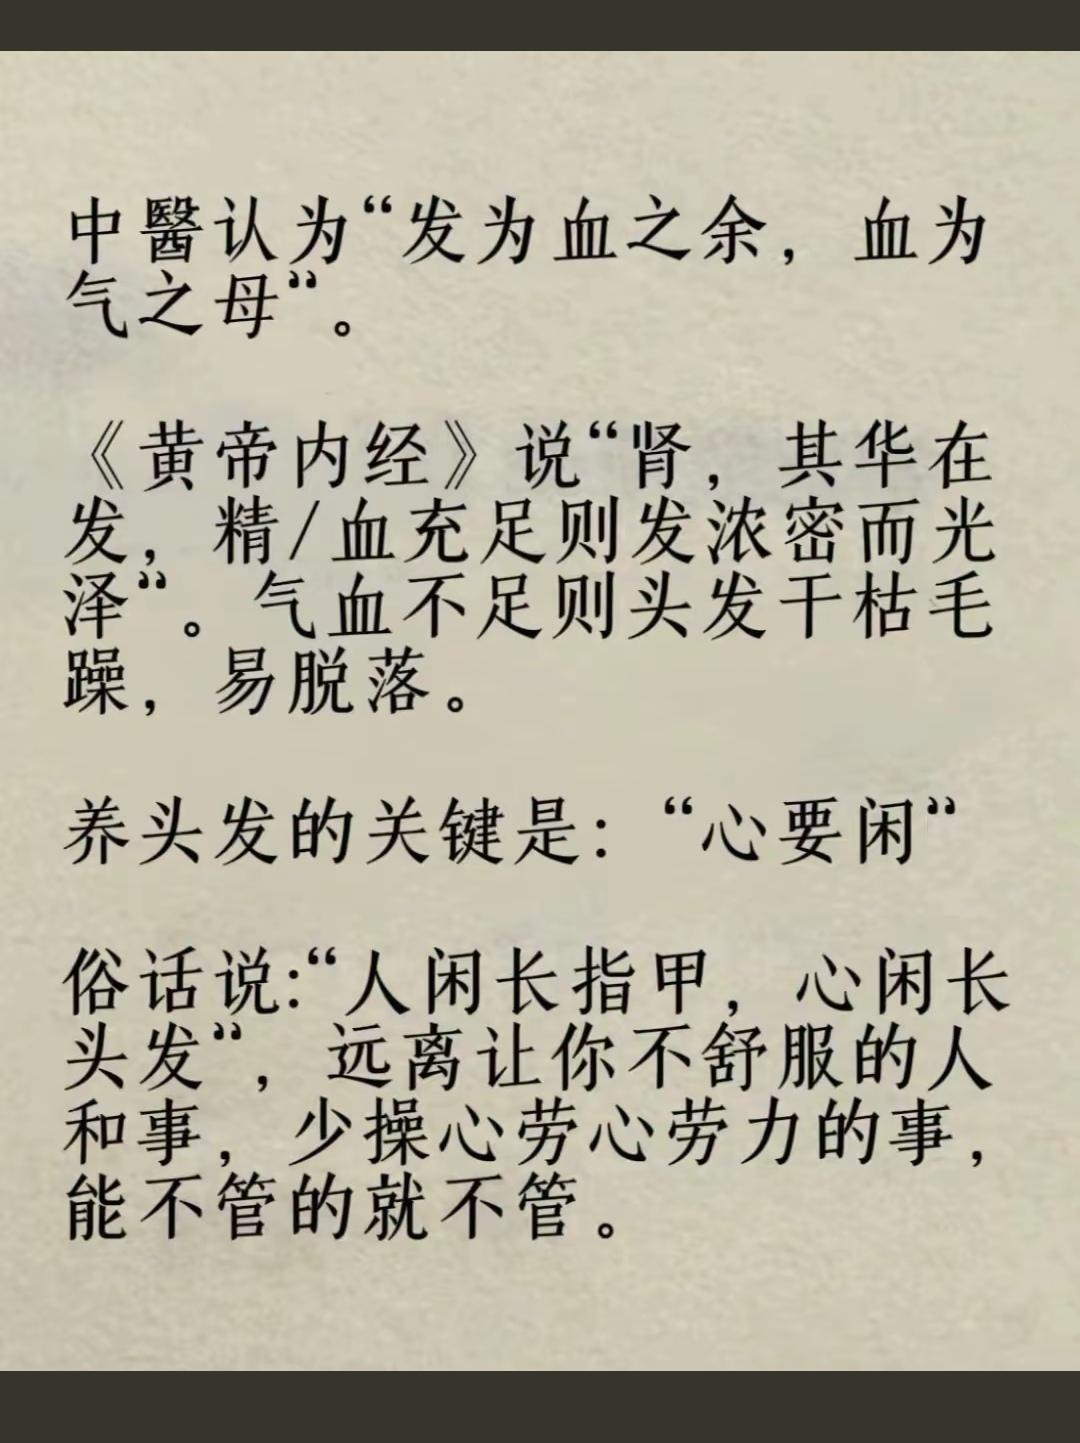 中醫认为“发为血之余，血为
气之母”。
《黄帝内经》说“肾，其华在
发，精/血充足则发浓密而光
泽”。气血不足则头发干枯毛
躁，易脱落。
养头发的关键是：“心要闲”
俗话说:“人闲长指甲，心闲长
头发”，远离让你不舒服的人
和事，少操心劳心劳力的事，
能不管的就不管。